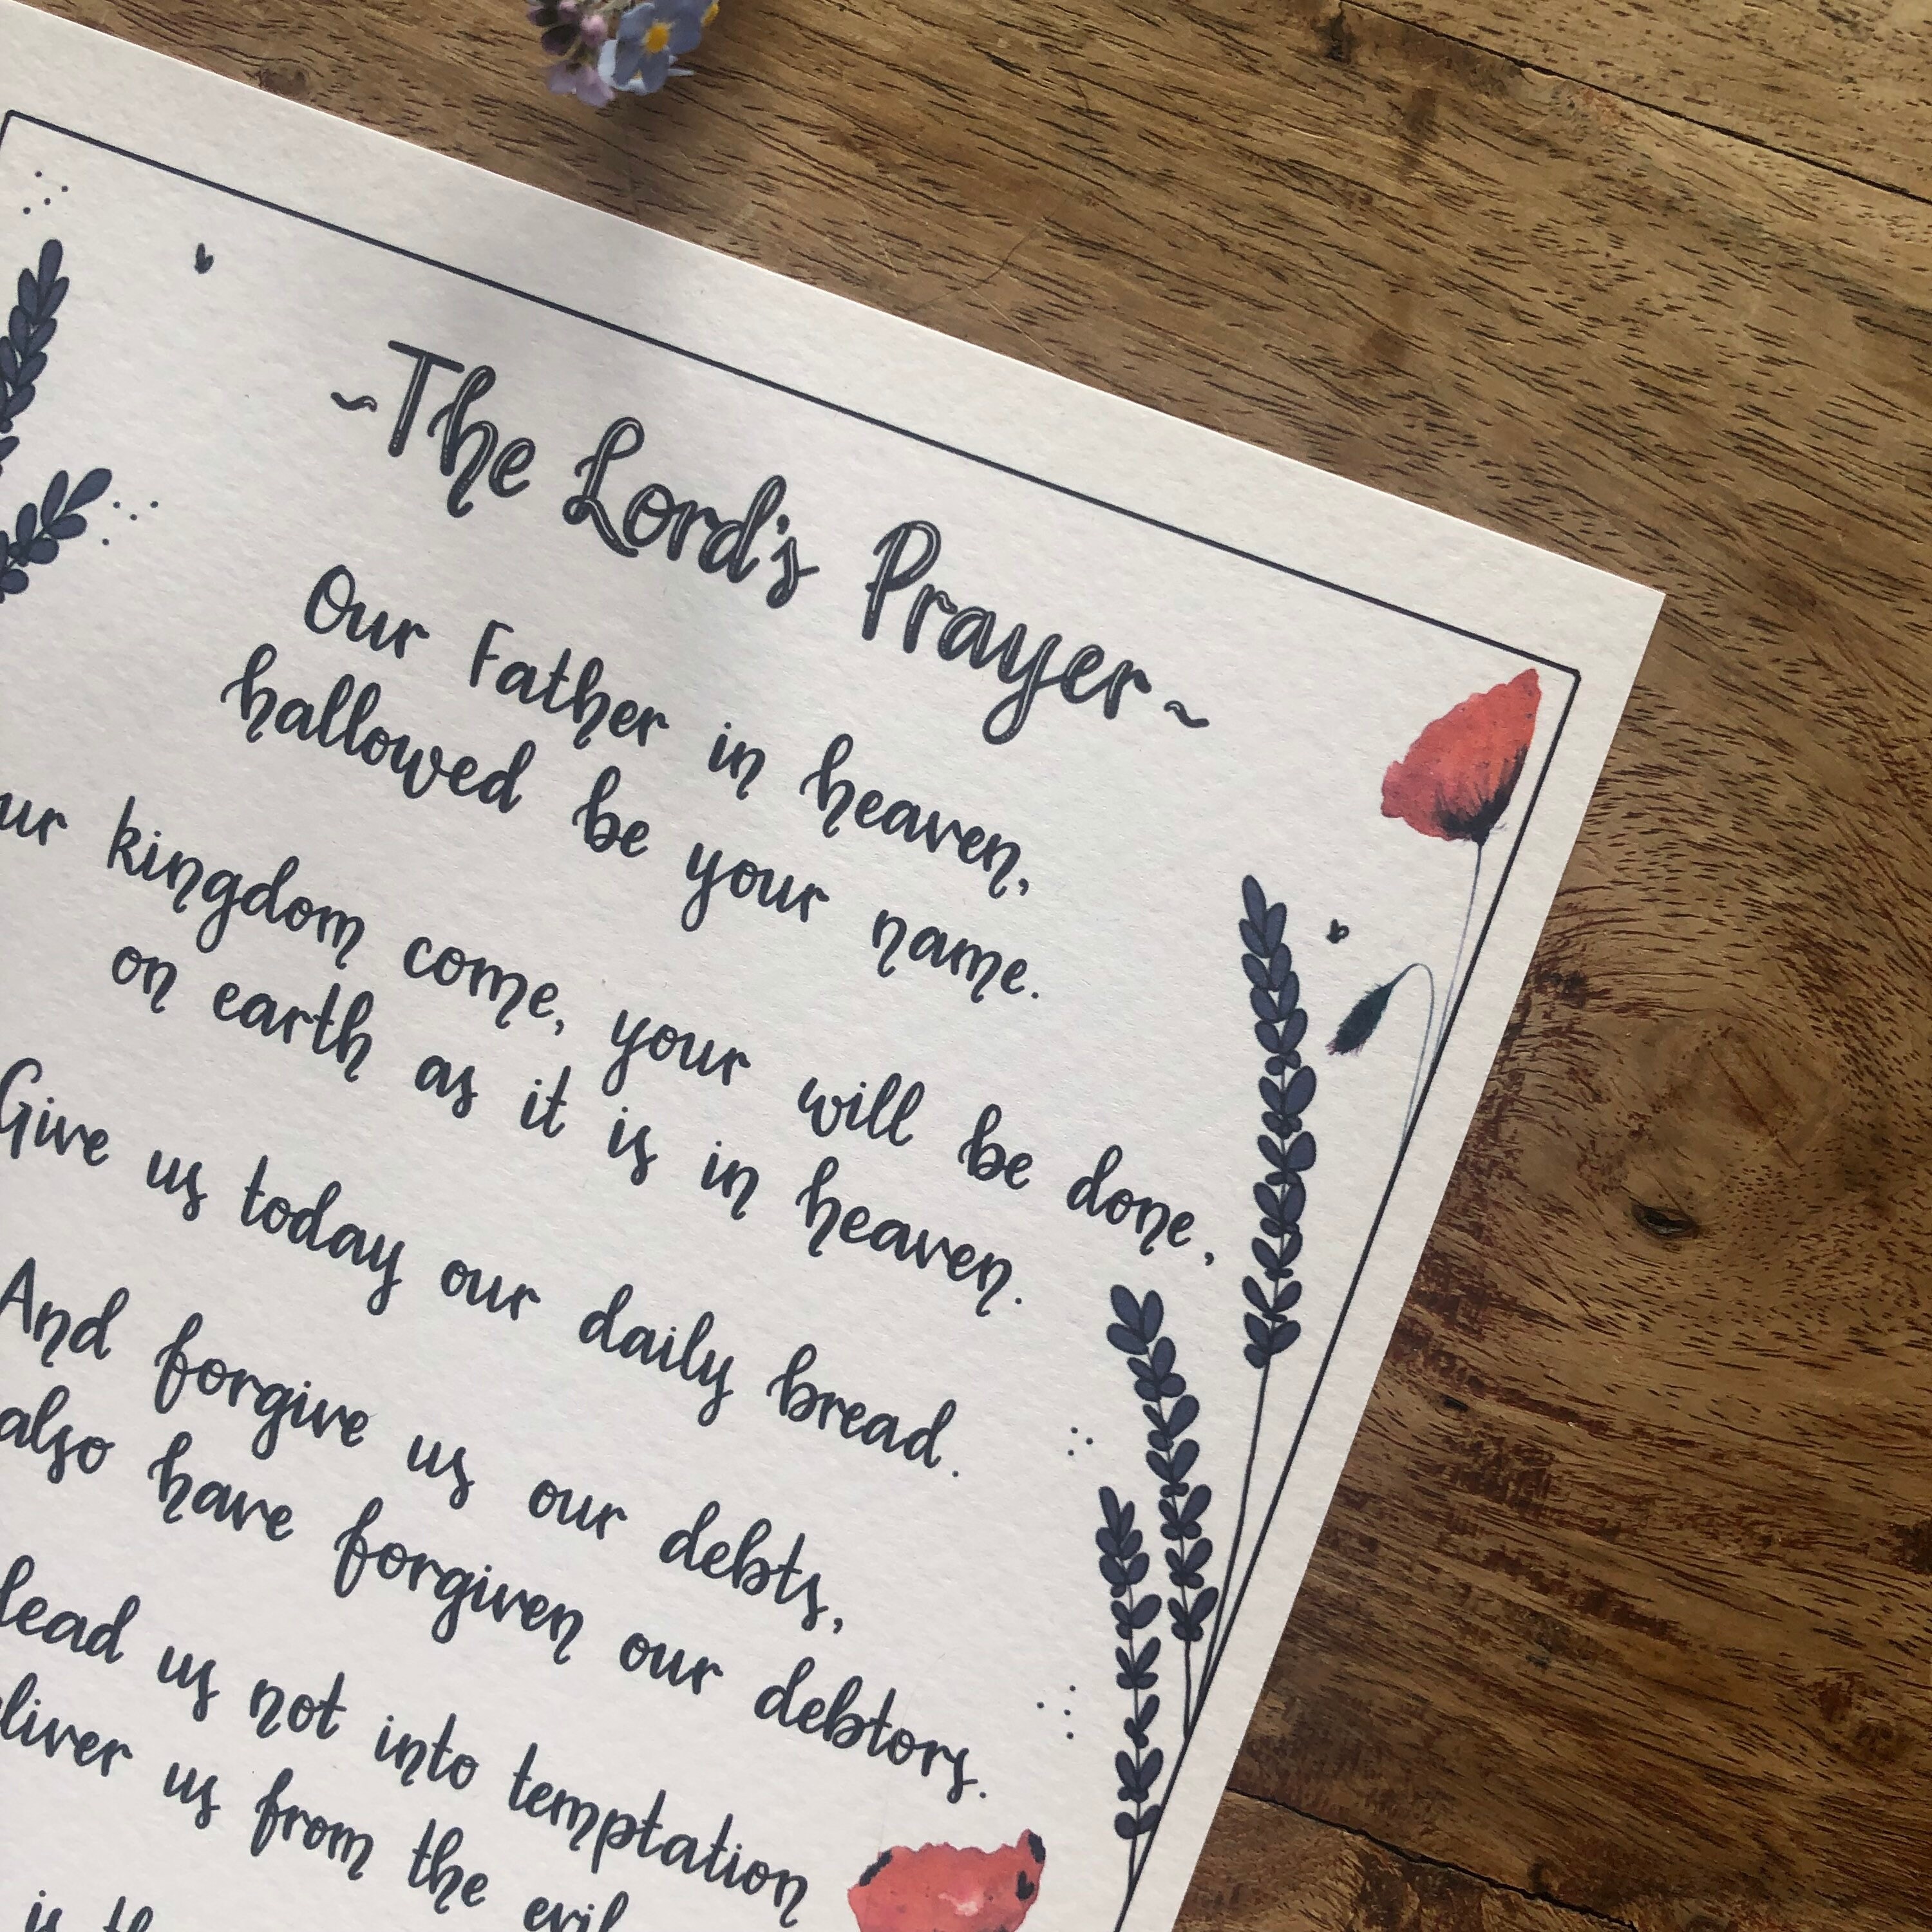 ~The Lord's Prayer~
Our Father in heaven,
hallowed be your name.
ur kingdom come, your will be done,
on earth as it is in heaven.
Give us today our daily bread.
And forgive us our debts,
also have forgiven our debtors.
lead us not into temptation
liver us from the evil
is th